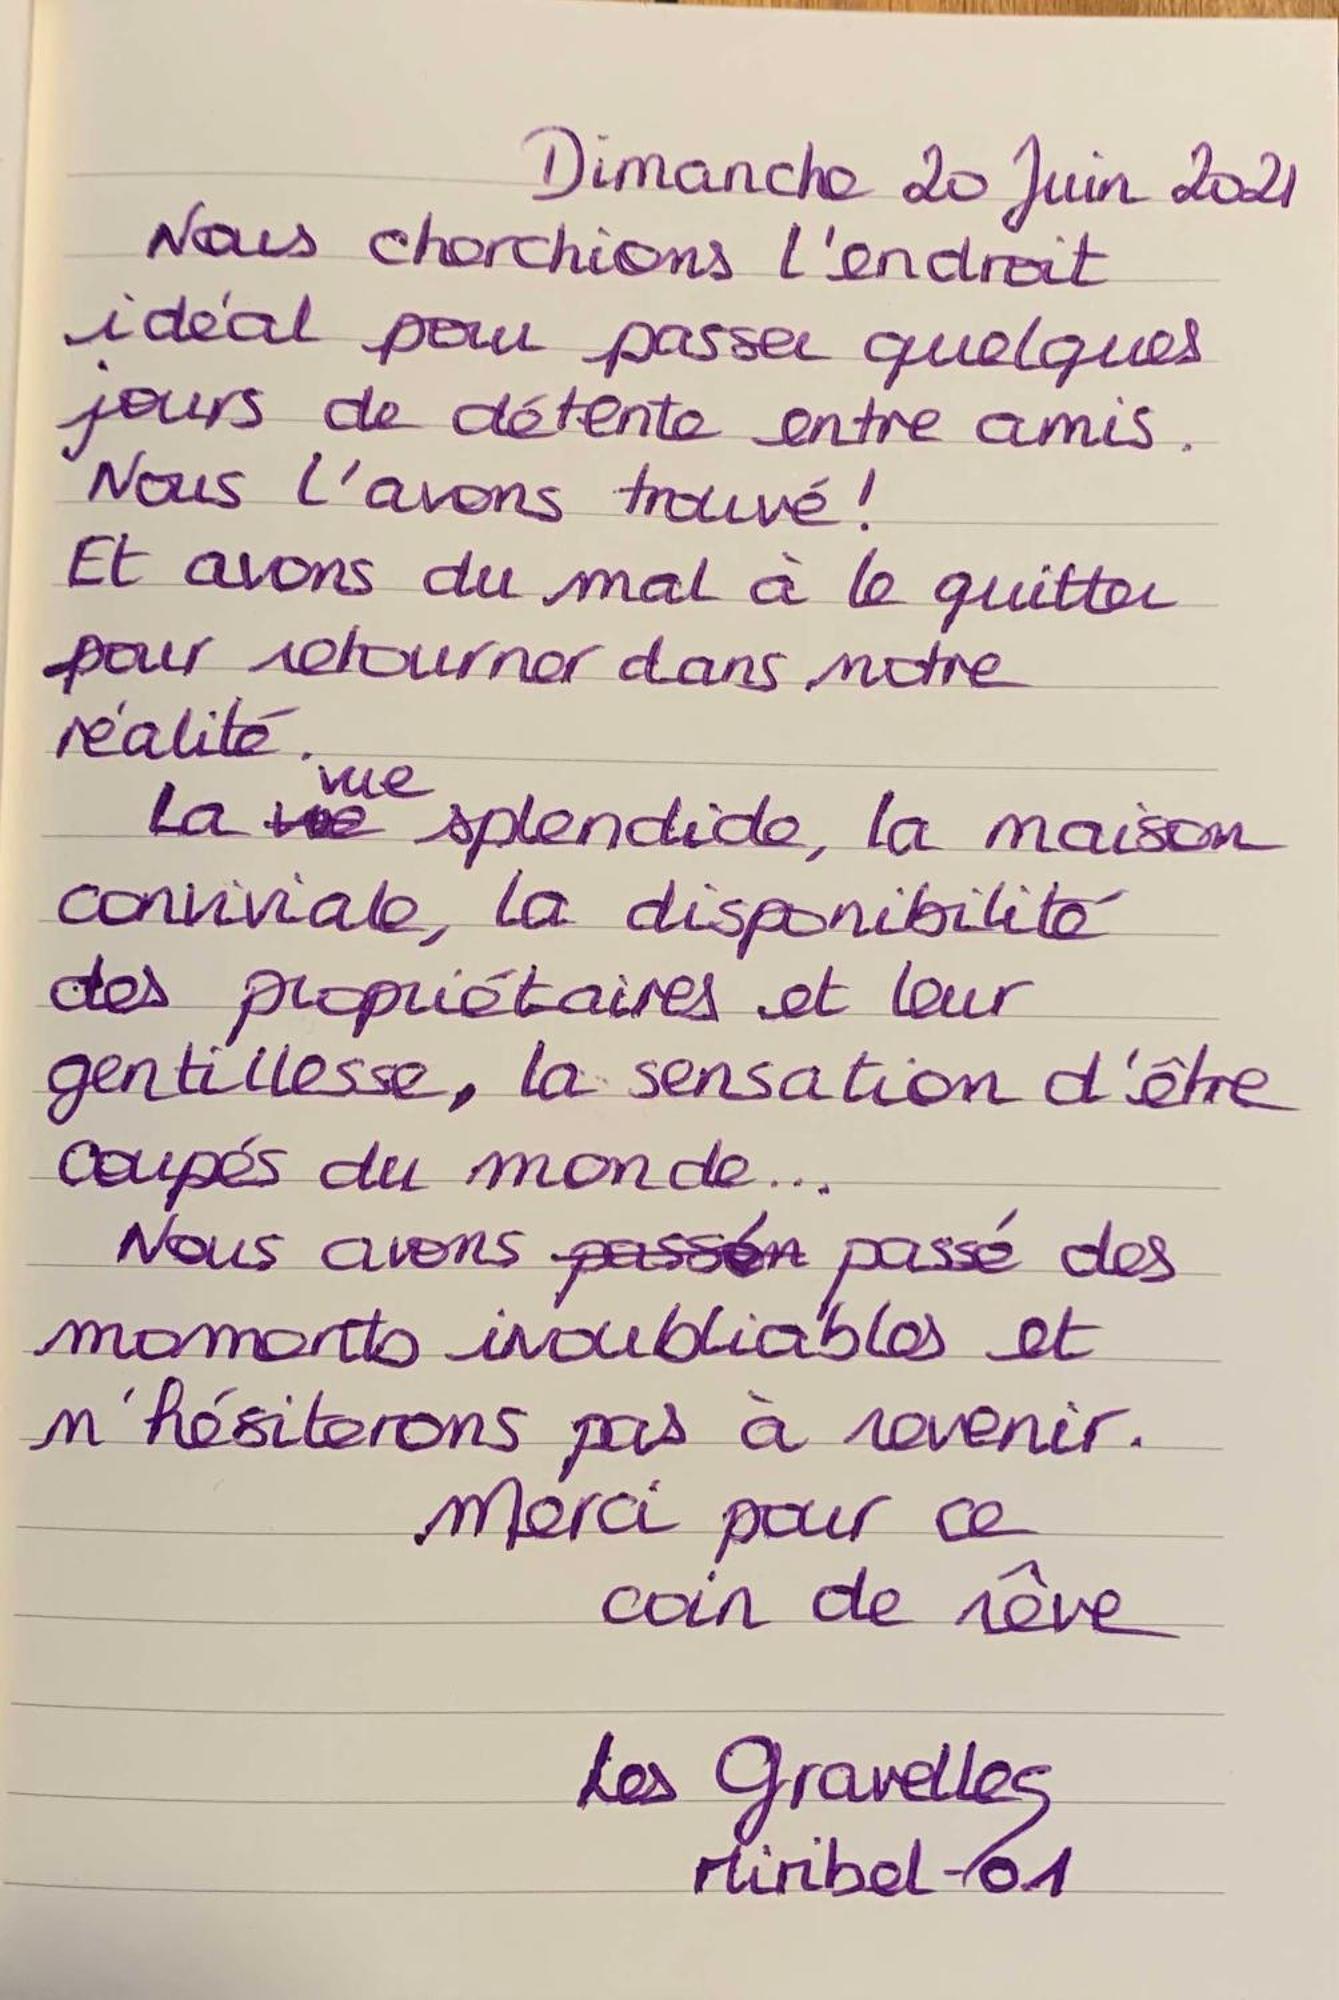 Dimanche 20 Juin 2021
Nous cherchions l'endroit
idéal pour passer quelques
jours de détente entre amis.
Nous l'avons trouvé !
Et avons du mal à le quitter
pour retourner dans notre
réalité.
vue
La vue splendide, la maison
conviviale, la disponibilité
des propriétaires et leur
gentillesse, la sensation d'être
coupés du monde...
Nous avons passén passé des
moments inoubliables et
n'hésiterons pas à revenir.
Merci pour ce
coin de rêve
Les Gravelles
Miribel-01